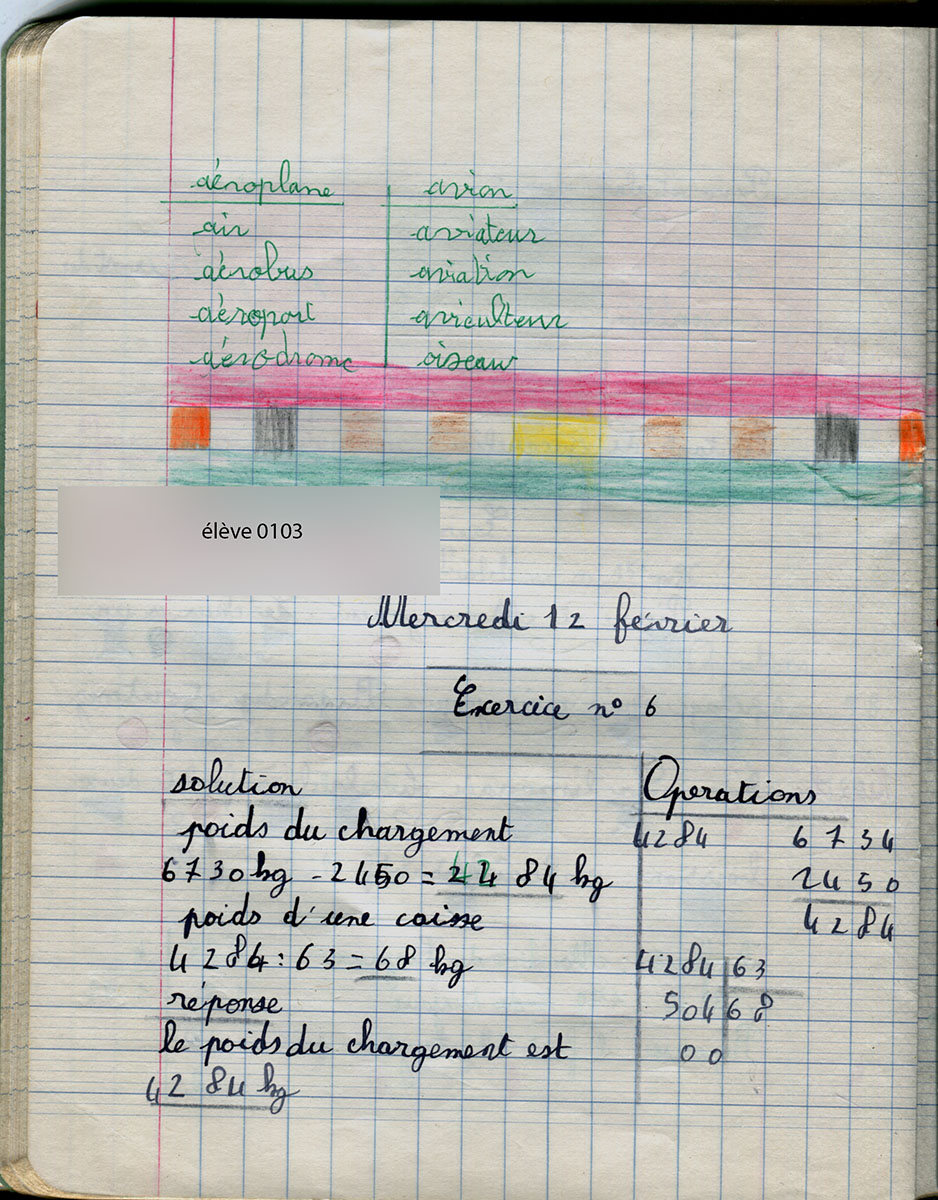 aéroplane avion
air aviateur
aérobus aviation
aéroport aviculteur
aérodrome oiseau
élève 0103
Mercredi 12 février
Exercice n° 6
solution
poids du chargement
6730 kg - 2450 = 42 84 kg
poids d'une caisse
4284 : 63 = 68 kg
réponse
le poids du chargement est
42 84 kg
Operations
4284 6734
2450
4284
4284 63
504 68
00